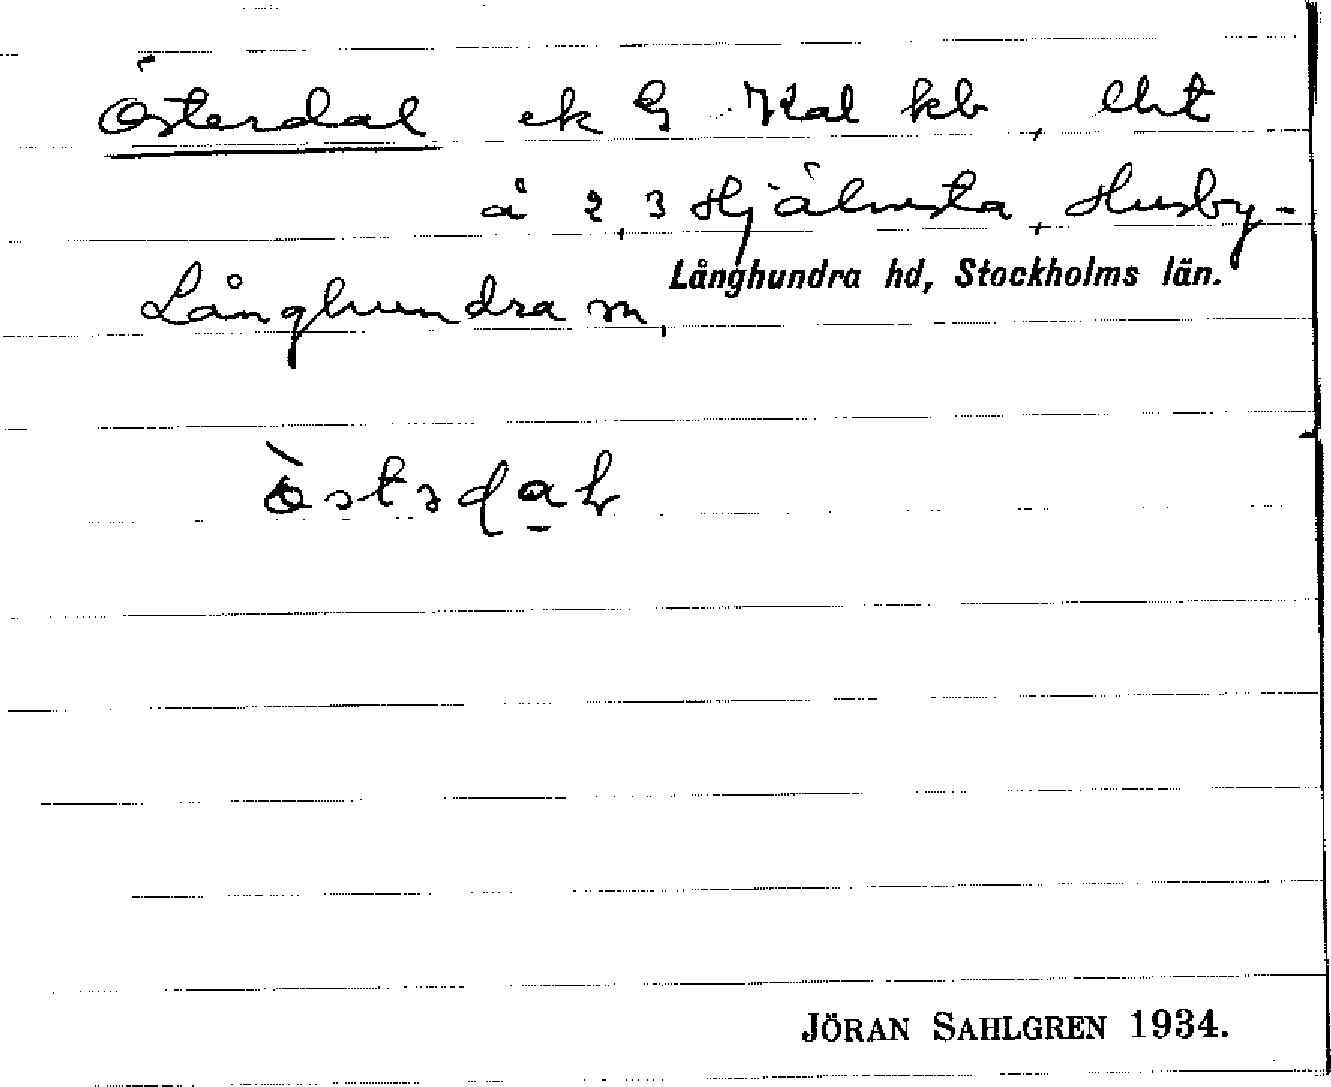 Österdal ek G Kal kb, lht
å 2, 3 Hjälmsta, Husby-
Långhundra m,
Långhundra hd, Stockholms län.
JÖRAN SAHLGREN 1934.